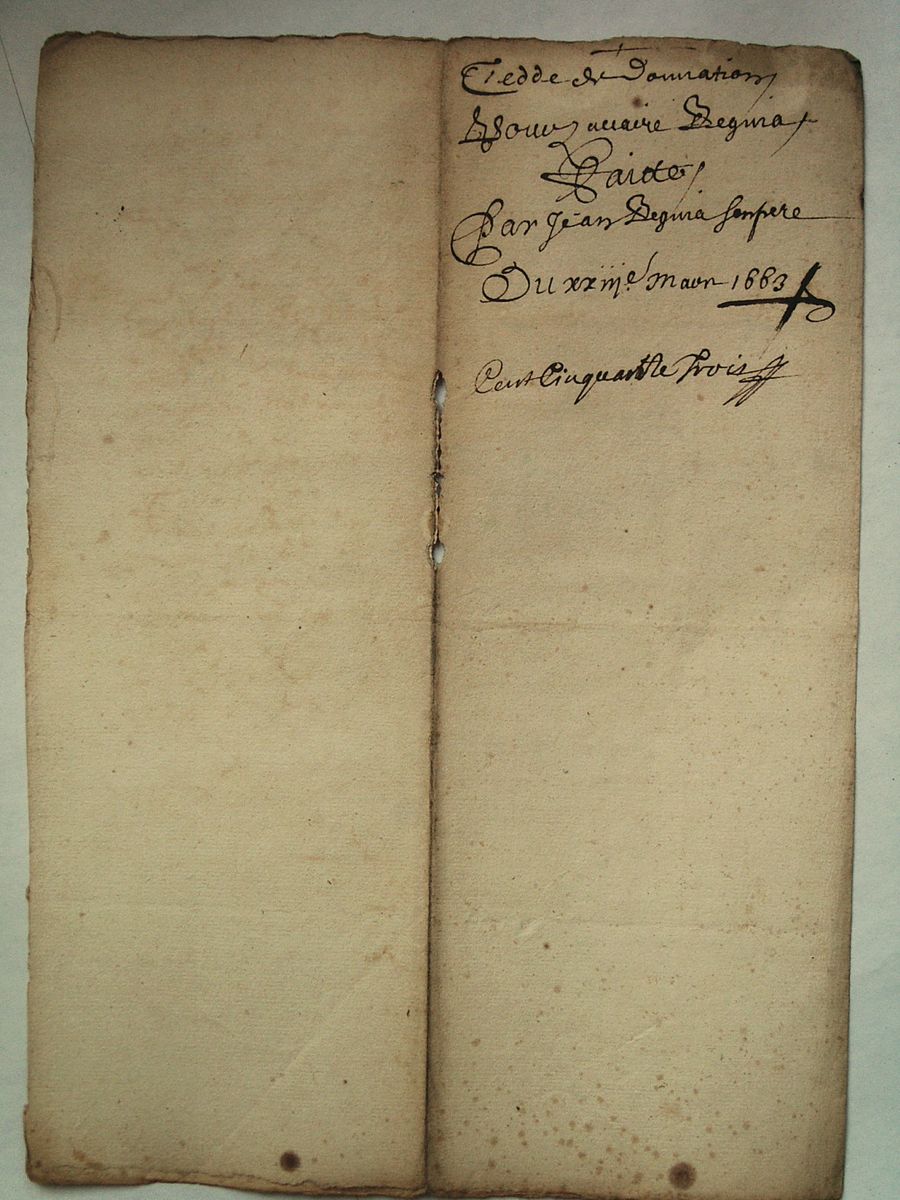 Cedde de Donnation
Pour accaire Reguia
Faicte
Par Jean Reguia son pere
Du xxiije mars 1663
Cent Cinquante Trois